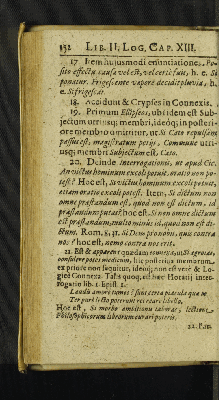 132 LIB. II. LOG. CAP. XIII.
17. Item hujusmodi enuntiationes. Po-
sito effectu causa vel est, vel certè fuit, h. e. Si
ponatur. Frigescente vapore decidit pluvia, h.
e. Si frigescat.
18. Accidunt & Crypses in Connexis.
19. Primum Ellipseos, ubi idem est Sub-
jectum utriusq; membri, ideoq; in posteri-
ore membro omittitur, ut Si Cato repulsam
passus est, magistratum petiit, Commune utri-
usq; membri Subjectum est, Cato.
20. Deinde interrogationis, ut apud Cic.
An victus hominum excoli potuit, oratio non po-
test? Hoc est, si victus hominum excoli potuit,
etiam oratio excoli potest. Item, Si dictum non
omne præstandum est, quod non est dictum, id
præstandum putas? hoc est. Si non omne dictum
est præstandum, multo minus id, quod non est di-
ctum. Rom. 8, 31. Si Deus pro nobis, quis contra
nos? hoc est, nemo contra nos erit.
21. Est & apparens quædam
consulere potes medicum, hic posterius membrum
ex priore non sequitur, ideoq; non est verè & Lo-
gicè Connexa. Talis quoq; ed hæc Horatij inter-
rogatio lib. 1. Epist. 1.
Laudis amore tumes? sunt certa piacula quæ te
Ter purè lecto poterunt recreare libello.
Hoc est, Si morbo ambitionis laboras, lectione
Philosophicorum librorum curari poteris.
22. Pari